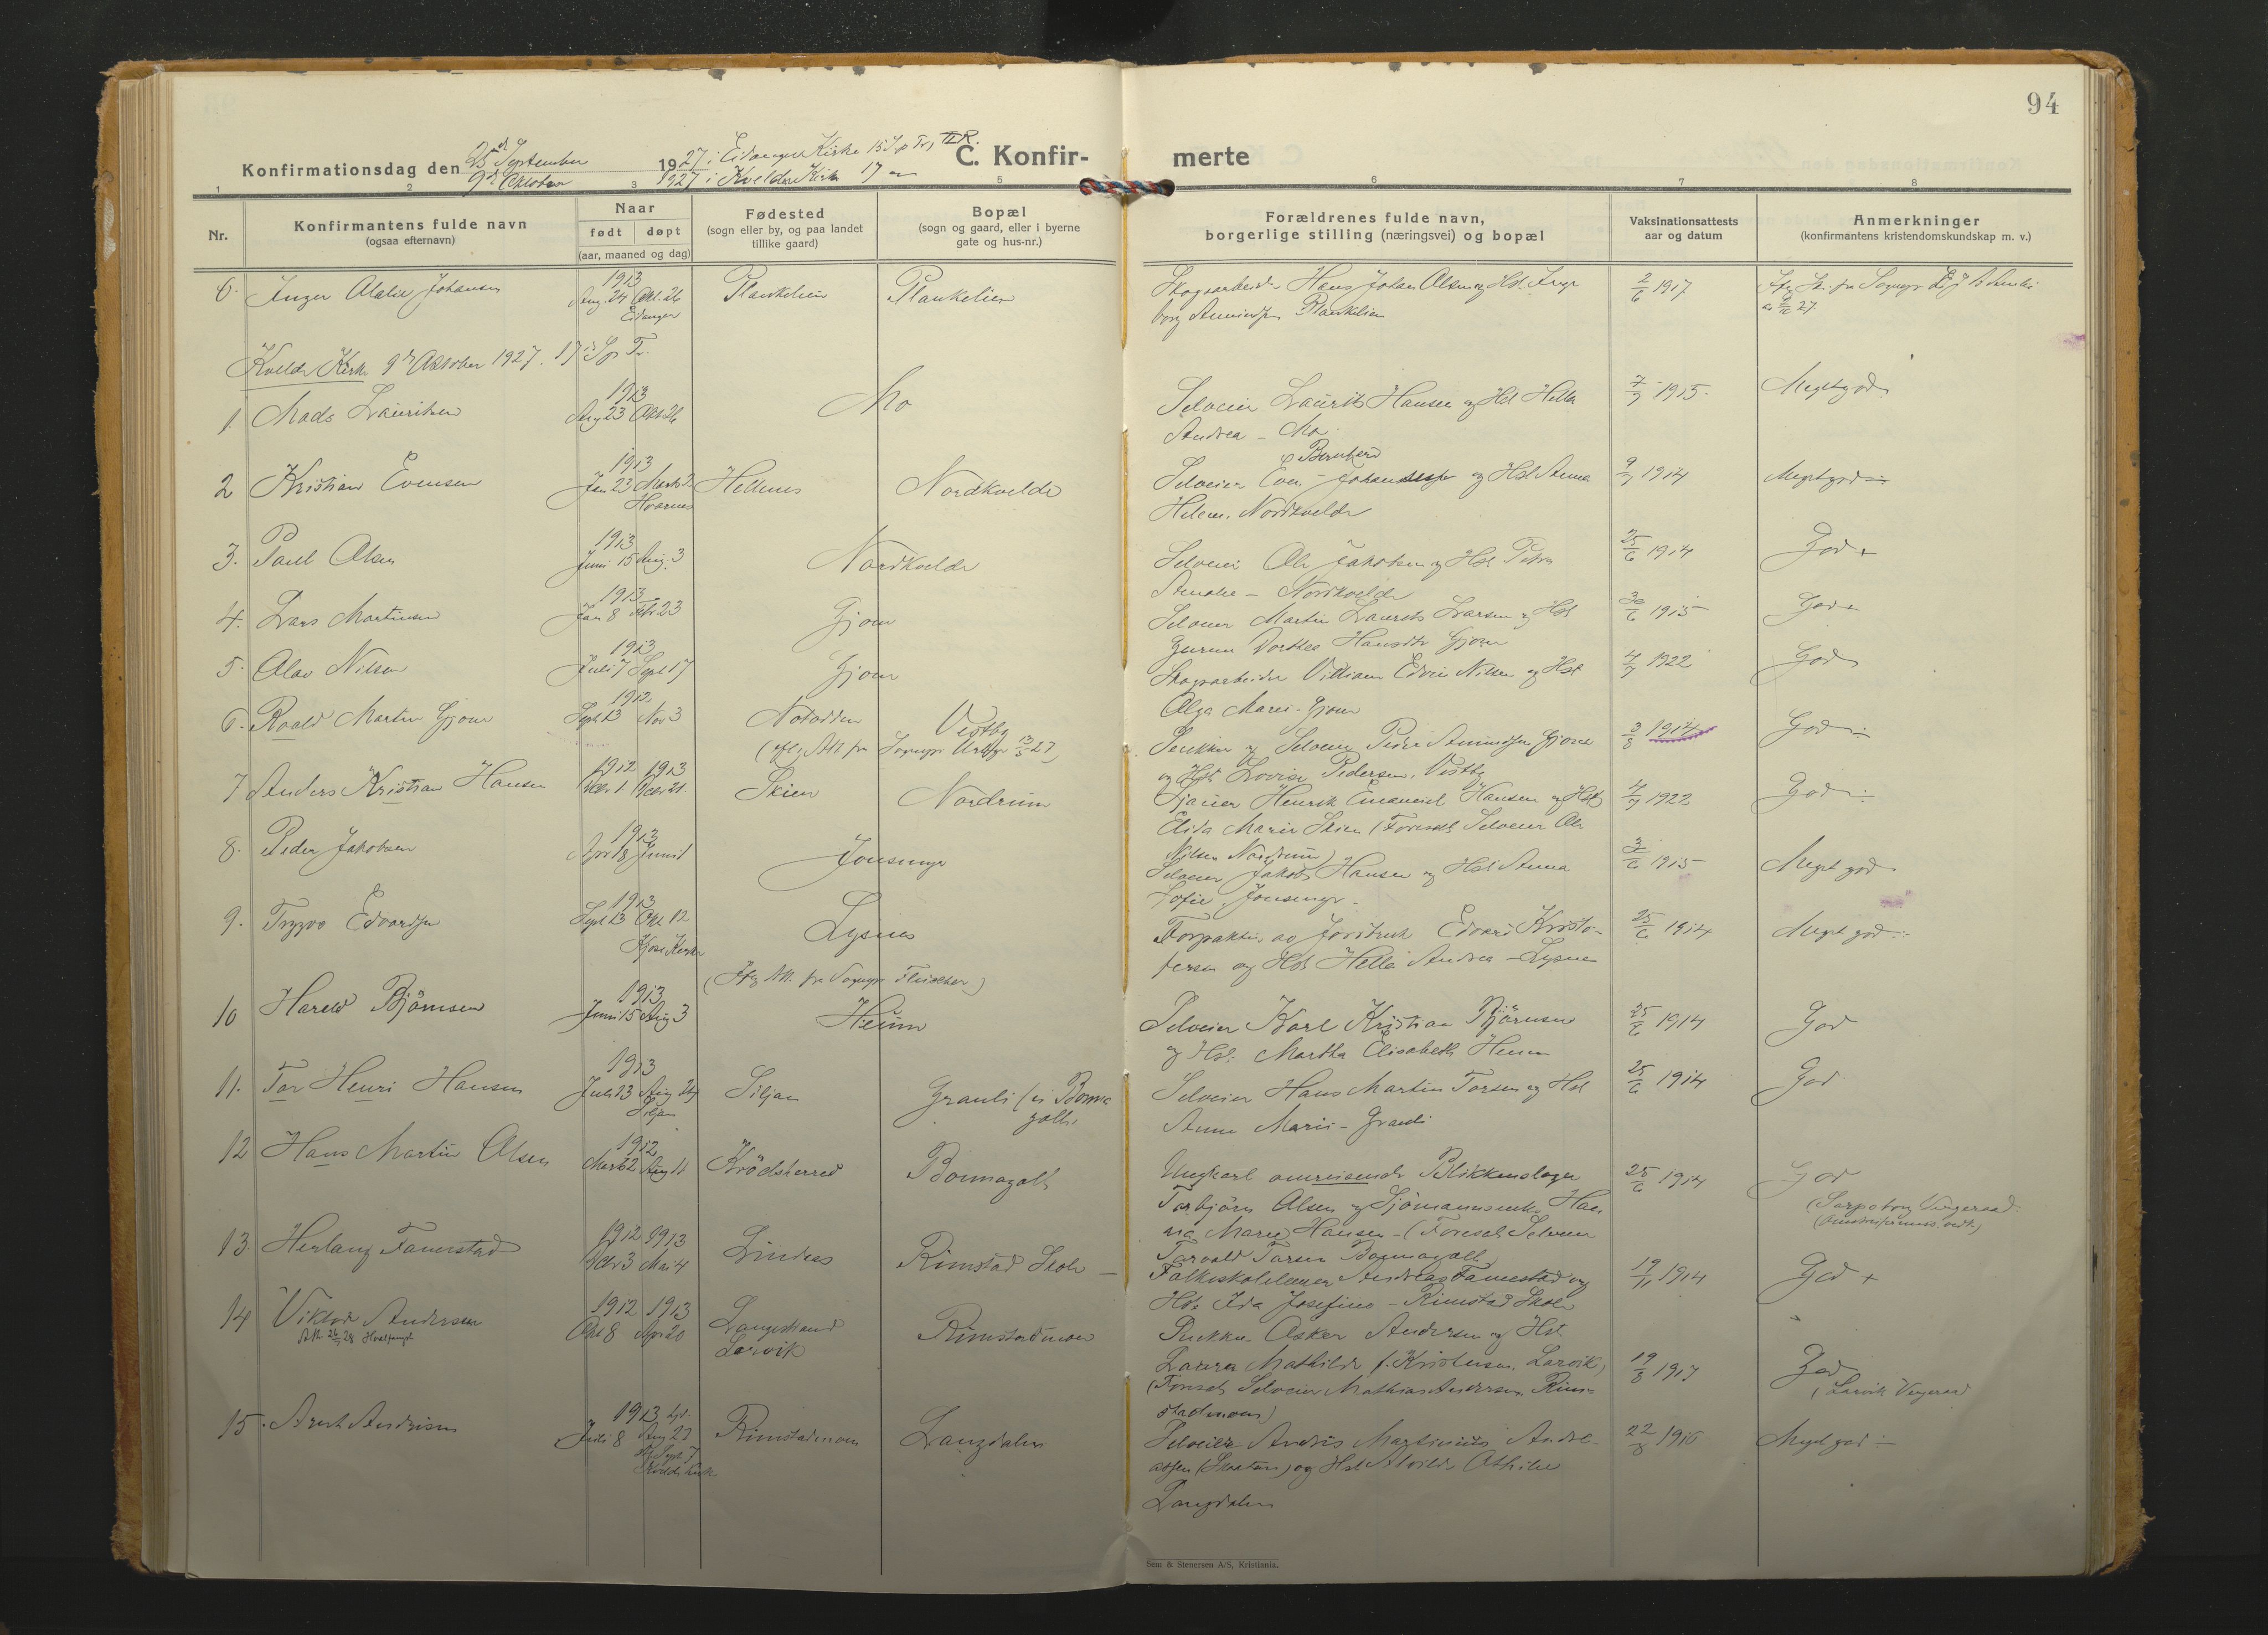 94
Konfirmationsdag den 25de September 1927 i Eidanger Kirke 15 S. e. Tr., II R.
9de Oktober 1927 i Kvelde Kirke 17
C. Konfir- merte
1 2 3 5 6 7 8
Nr.
Konfirmantens fulde navn
(ogsaa efternavn)
Naar
født døpt
(aar, maaned og dag)
Fødested
(sogn eller by, og paa landet
tillike gaard)
Bopæl
(sogn og gaard, eller i byerne
gate og hus-nr.)
Forældrenes fulde navn,
borgerlige stilling (næringsvei) og bopæl
Vaksinationsattests
aar og datum
Anmerkninger
(konfirmantens kristendomskundskap m. v.)
6. Inger Alalie Johansen 1913 Aug. 24 Okt. 26 Eidanger Plankelien Plankelien
Skogsarbeider Hans Johan Olsen og Hst Inge
borg Plankelien 2/6 1917
Kvelde Kirke 9de Oktober 1927. 17 S. e. Tr.
1. Mads Lauritsen 1913 Aug 23 Okt 26 Mo
Selveier Laurits Hansen og Hst Hella
Andrea - Mo. 7/7 1915. Meget god
2 Kristian Evensen 1913 Jan 23 Marts 2 Hvarnes Hellenes Nordkvelde
Selveier Even Johannessen og Hst Anna
Helene, Nordkvelde 9/7 1914 Meget god -
3. Paul Olsen 1913 Juni 15 Aug. 3 Nordkvelde
Selveier Ole Jakobsen og Hst Petra
Amalie - Nordkvelde 25/6 1914 God +
4. Lars Martinsen 1913 Jan 8 Febr 23 Gjone
Selveier Martin Laurits Larsen og Hst
Gurine Dorthea Hansdtr Gjone 30/6 1915 God +
5. Olav Nilsen 1913 Juli 7 Sept 17 Gjone
Skogsarbeider Villiam Edvin Nilsen og Hst
Olga Marie - Gjone 4/7 1922 God
6. Roald Martin Gjone 1912 Sept 13 Nov 3 Notodden Vestby
Snekker og Selveier Peder Amundsen Gjone
og Hst Lovise Pedersen, Vestby 3/8 1914 God -
7 Anders Kristian Hansen 1912 1913 Decbr 1 Decbr 21. Skien Nordrum
Sjauer Henrik Emanuel Hansen og Hst
Elida Marie Skien (Foresat Selveier Ole
Nilsen Nordrum) 4/7 1922 God -
8. Peder Jakobsen 1913 Apr 18 Juni 1 Jonsmyr
Selveier Jakob Hansen og Hst Anna
Sofie, Jonsmyr - 3/6 1915 Meget god
9. Trygve Edvardsen 1913 Sept 13 Okt 12 Kjose Kirke Lysnes
Forpakter av Jordbruk Edvard Kristo-
fersen og Hst Hella Andrea - Lysnes 25/6 1914 Meget god -
10 Harald Bjørnsen 1913 Juni 15 Aug 3 Heum
Selveier Karl Kristian Bjørnsen
og Hst. Martha Elisabeth Heum 25/6 1914 God
11. Tor Henri Hansen 1913 Juli 13 Aug 24 Siljan Siljan Grauli (i Bonne
galt.
Selveier Hans Martin Torsen og Hst
Anne Marie - Grauli 25/6 1914 God
12 Hans Martin Olsen 1912 Marts 2 Aug 11 Krødsherred Bonnegolt
Ungkarl omreisende Blikkenslager
Torbjørn Olsen og Sjømannsenke Han
na Marie Hansen - (Foresat Selveier
Torvald Torsen Bonnegolt 25/6 1914 God
13. Herlaug Famestad 1912 1913 Decbr 3 Mai 4 Lindaas Rimstad Skole
Folkeskolelærer Andreas Famestad og
Hst. Ida Josefine - Rimstad Skole 19/11 1914 God +
14 Viktor Andersen 1912 1913 Okt 8 Apr 20 Langestrand
Larvik Rimstadmoen
Snekker Oskar Andersen og Hst
Laura Mathilde f. Kristensen, Larvik,
(Foresat Selveier Mathias Andersen Rim-
stadmoen) 19/8 1917 God
15. Arent Andrisen 1913 Juli 8 Aug 27 Sept 7 Kvelde Kirke Rimstadmoen Langdalen
Selveier Andris Martinius Andre-
assen (Skaatan) og Hst Alvilde Othilie
Langdalen 22/8 1916 Meget god -
Sem & Stenersen A/S, Kristiania.